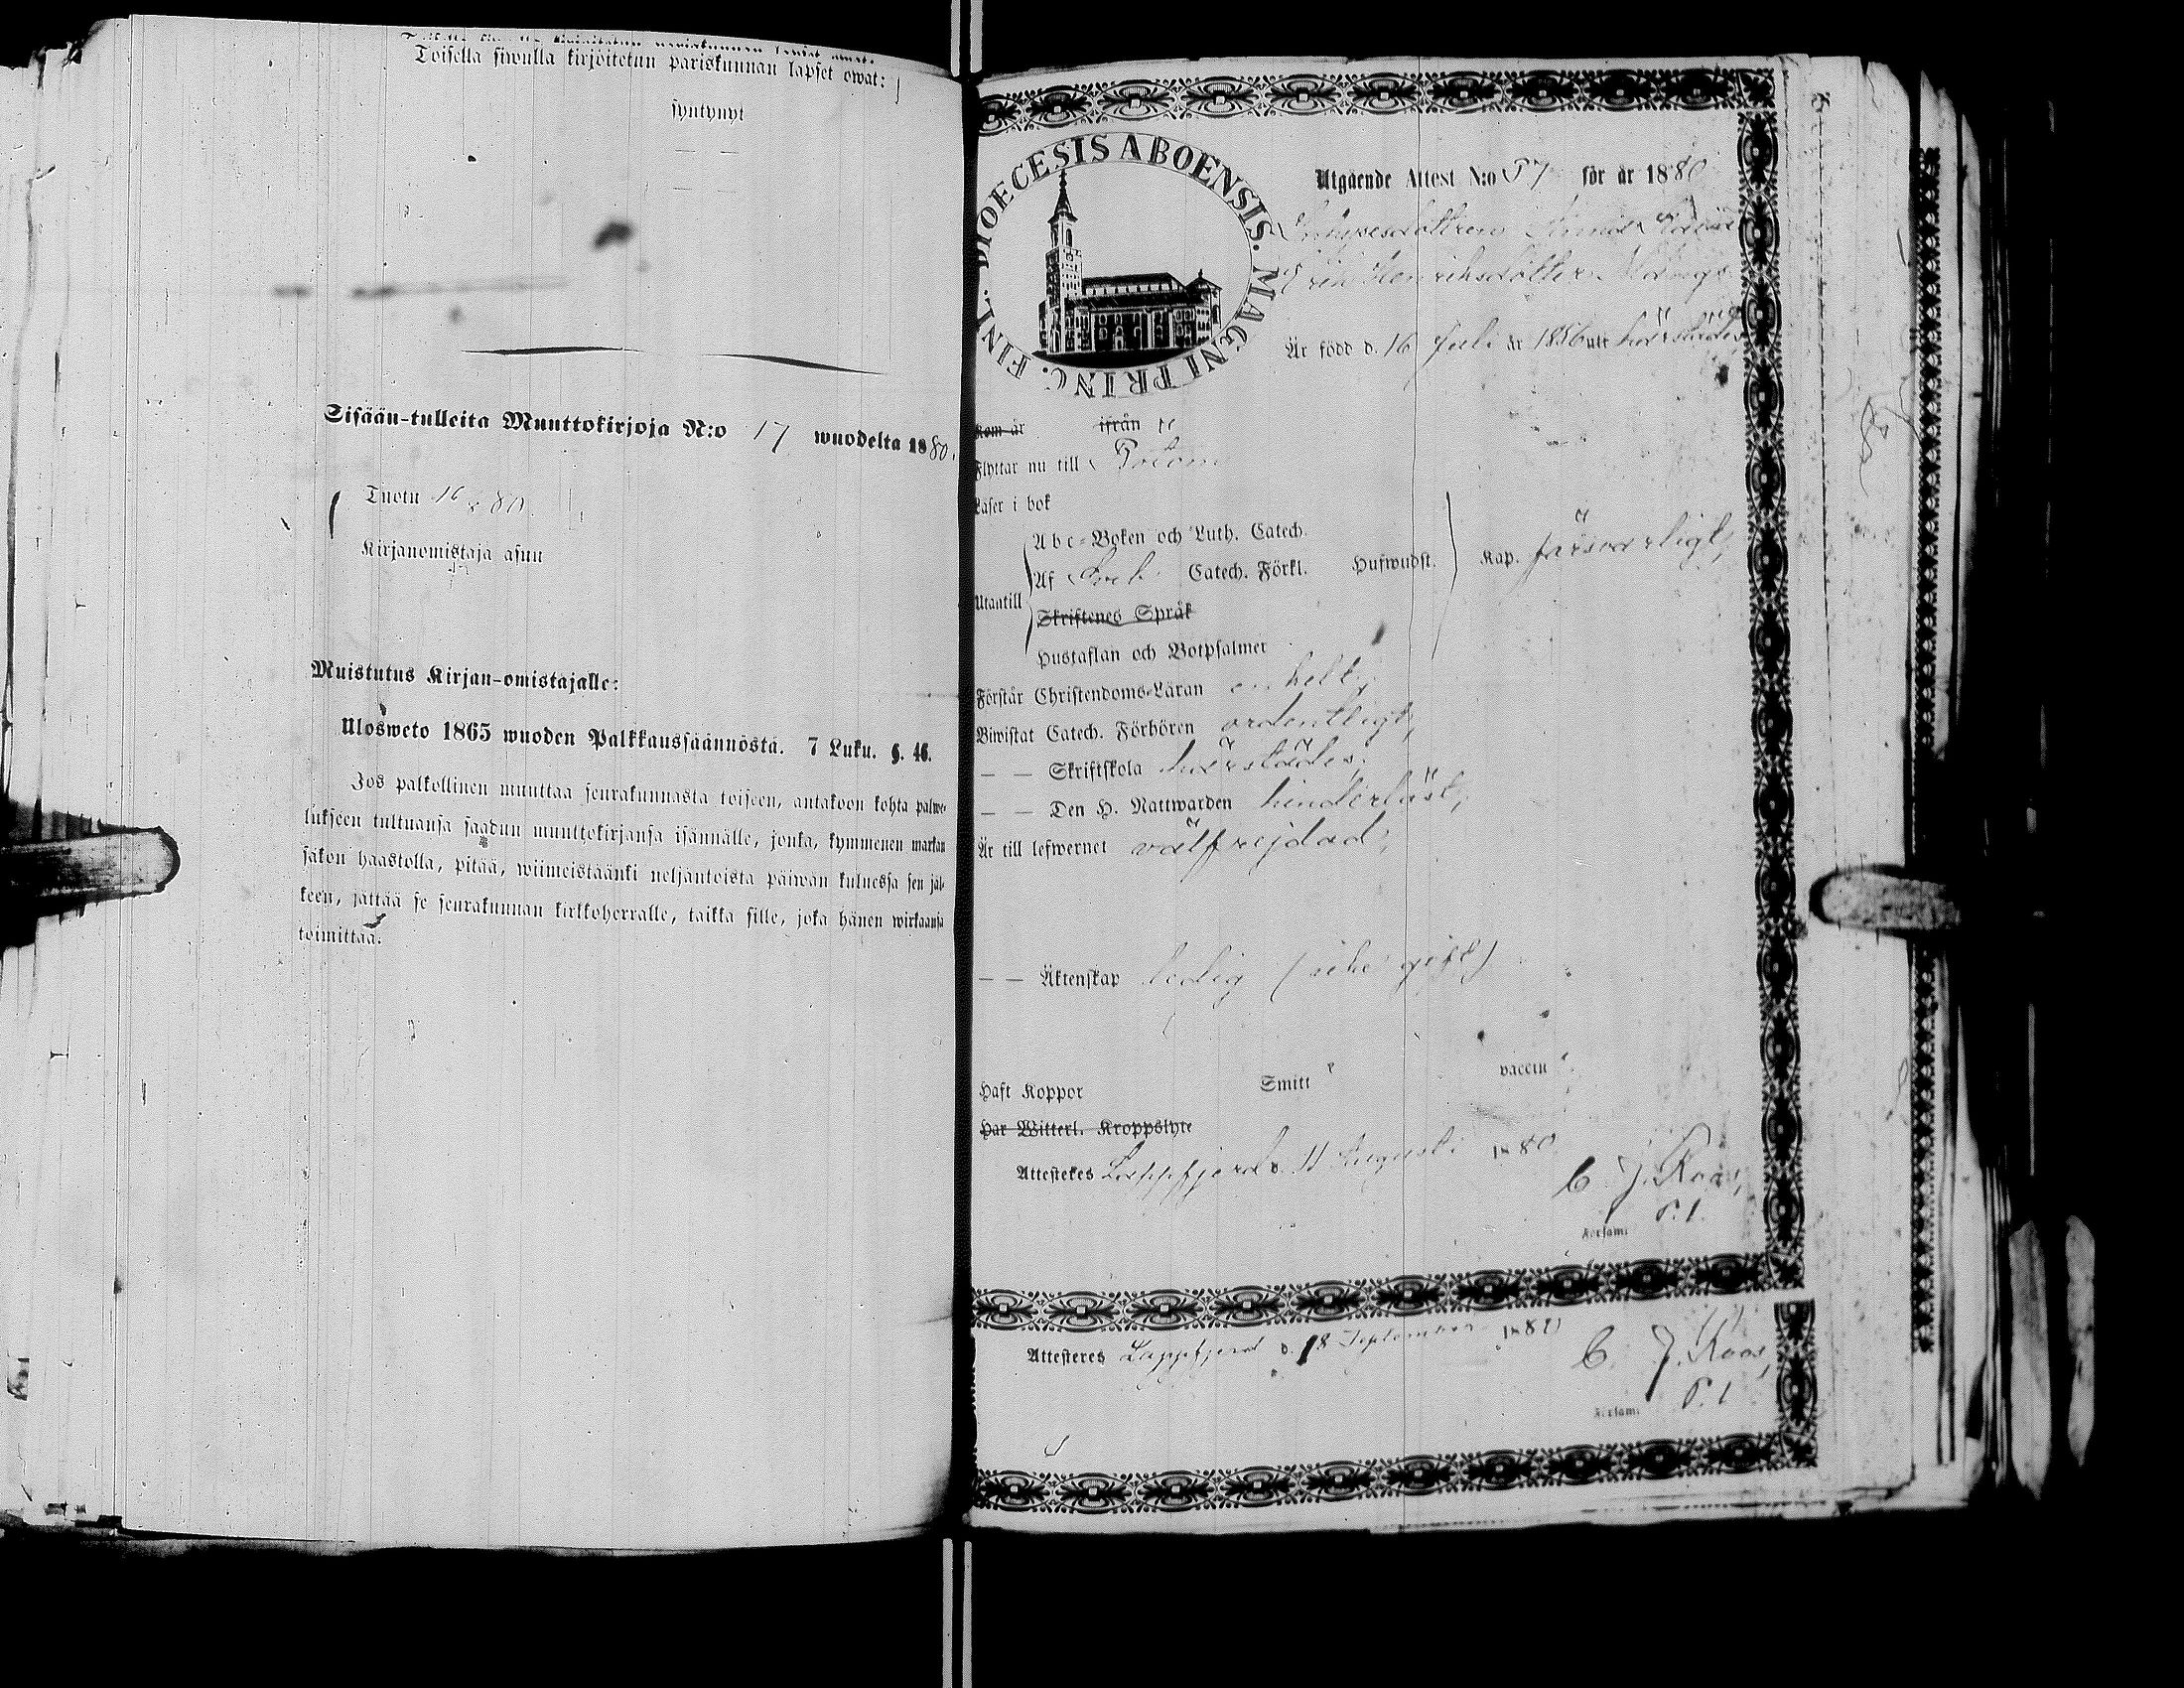 Toisella siwulla kirjoitetun pariskunnan lapset owat:
syntynyt
Sisään-tulleita Muuttokirjoja N:o 17 wuodelta 1880.
Tuotu 16 80.
Kirjanomistaja asuu
Muistutus Kirjan-omistajalle:
Ulosweto 1865 wuoden Palkkaussäännöstä. 7 Luku. §. 46.
Jos palkollinen muuttaa seurakunnasta toiseen, antakoon kohta palwe-
lukseen tultuansa saadun muuttokirjansa isännälle, jonka, kymmenen markan
sakon haastolla, pitää, wiimeistäänki neljäntoista päiwän kuluessa sen jäl-
keen, jättää se seurakunnan kirkkoherralle, taikka sille, joka hänen wirkaansa
toimittaa.
DIOECESIS ABOENSIS. MAGNI PRINC. FINL.
Utgående Attest N:o 57 för år 1880
Henriksdotter
Är född d. 16 Juli år 1856 uti härstädes
Kom år ifrån
Flyttar nu till
Läser i bok
Utantill
Abc-Boken och Luth. Catech.
Af Sveb. Catech. Förkl. Hufwudst. Kap. försvarligt,
Skriftenes Språk
Hustaflan och Botpsalmer
Förstår Christendoms-Läran enkelt,
Biwistat Catech. Förhören ordentligt,
— — Skriftskola härstädes,
— — Den H. Nattwarden hinderlöst,
Är till lefwernet välfrejdad,
— — Äktenskap ledig (icke gift)
Haft Koppor Smitt vaccin
Har Witterl. Kroppslyte
Attesteres Lappfjerd d. 11 Augusti 1880
C. J. Roos,
P. l.
Kyrkoh.
Attesteres Lappfjerd d. 18 September 1880
C. J. Roos,
P. l.